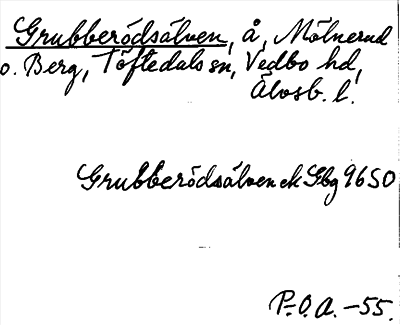 Grubberödsälven, å, Mölnerud
o. Berg, Töftedals sn, Vedbo hd,
Älvsb. l.
Grubberödsälven ek Gbg 9 6 SO
P.-O. A. -55.